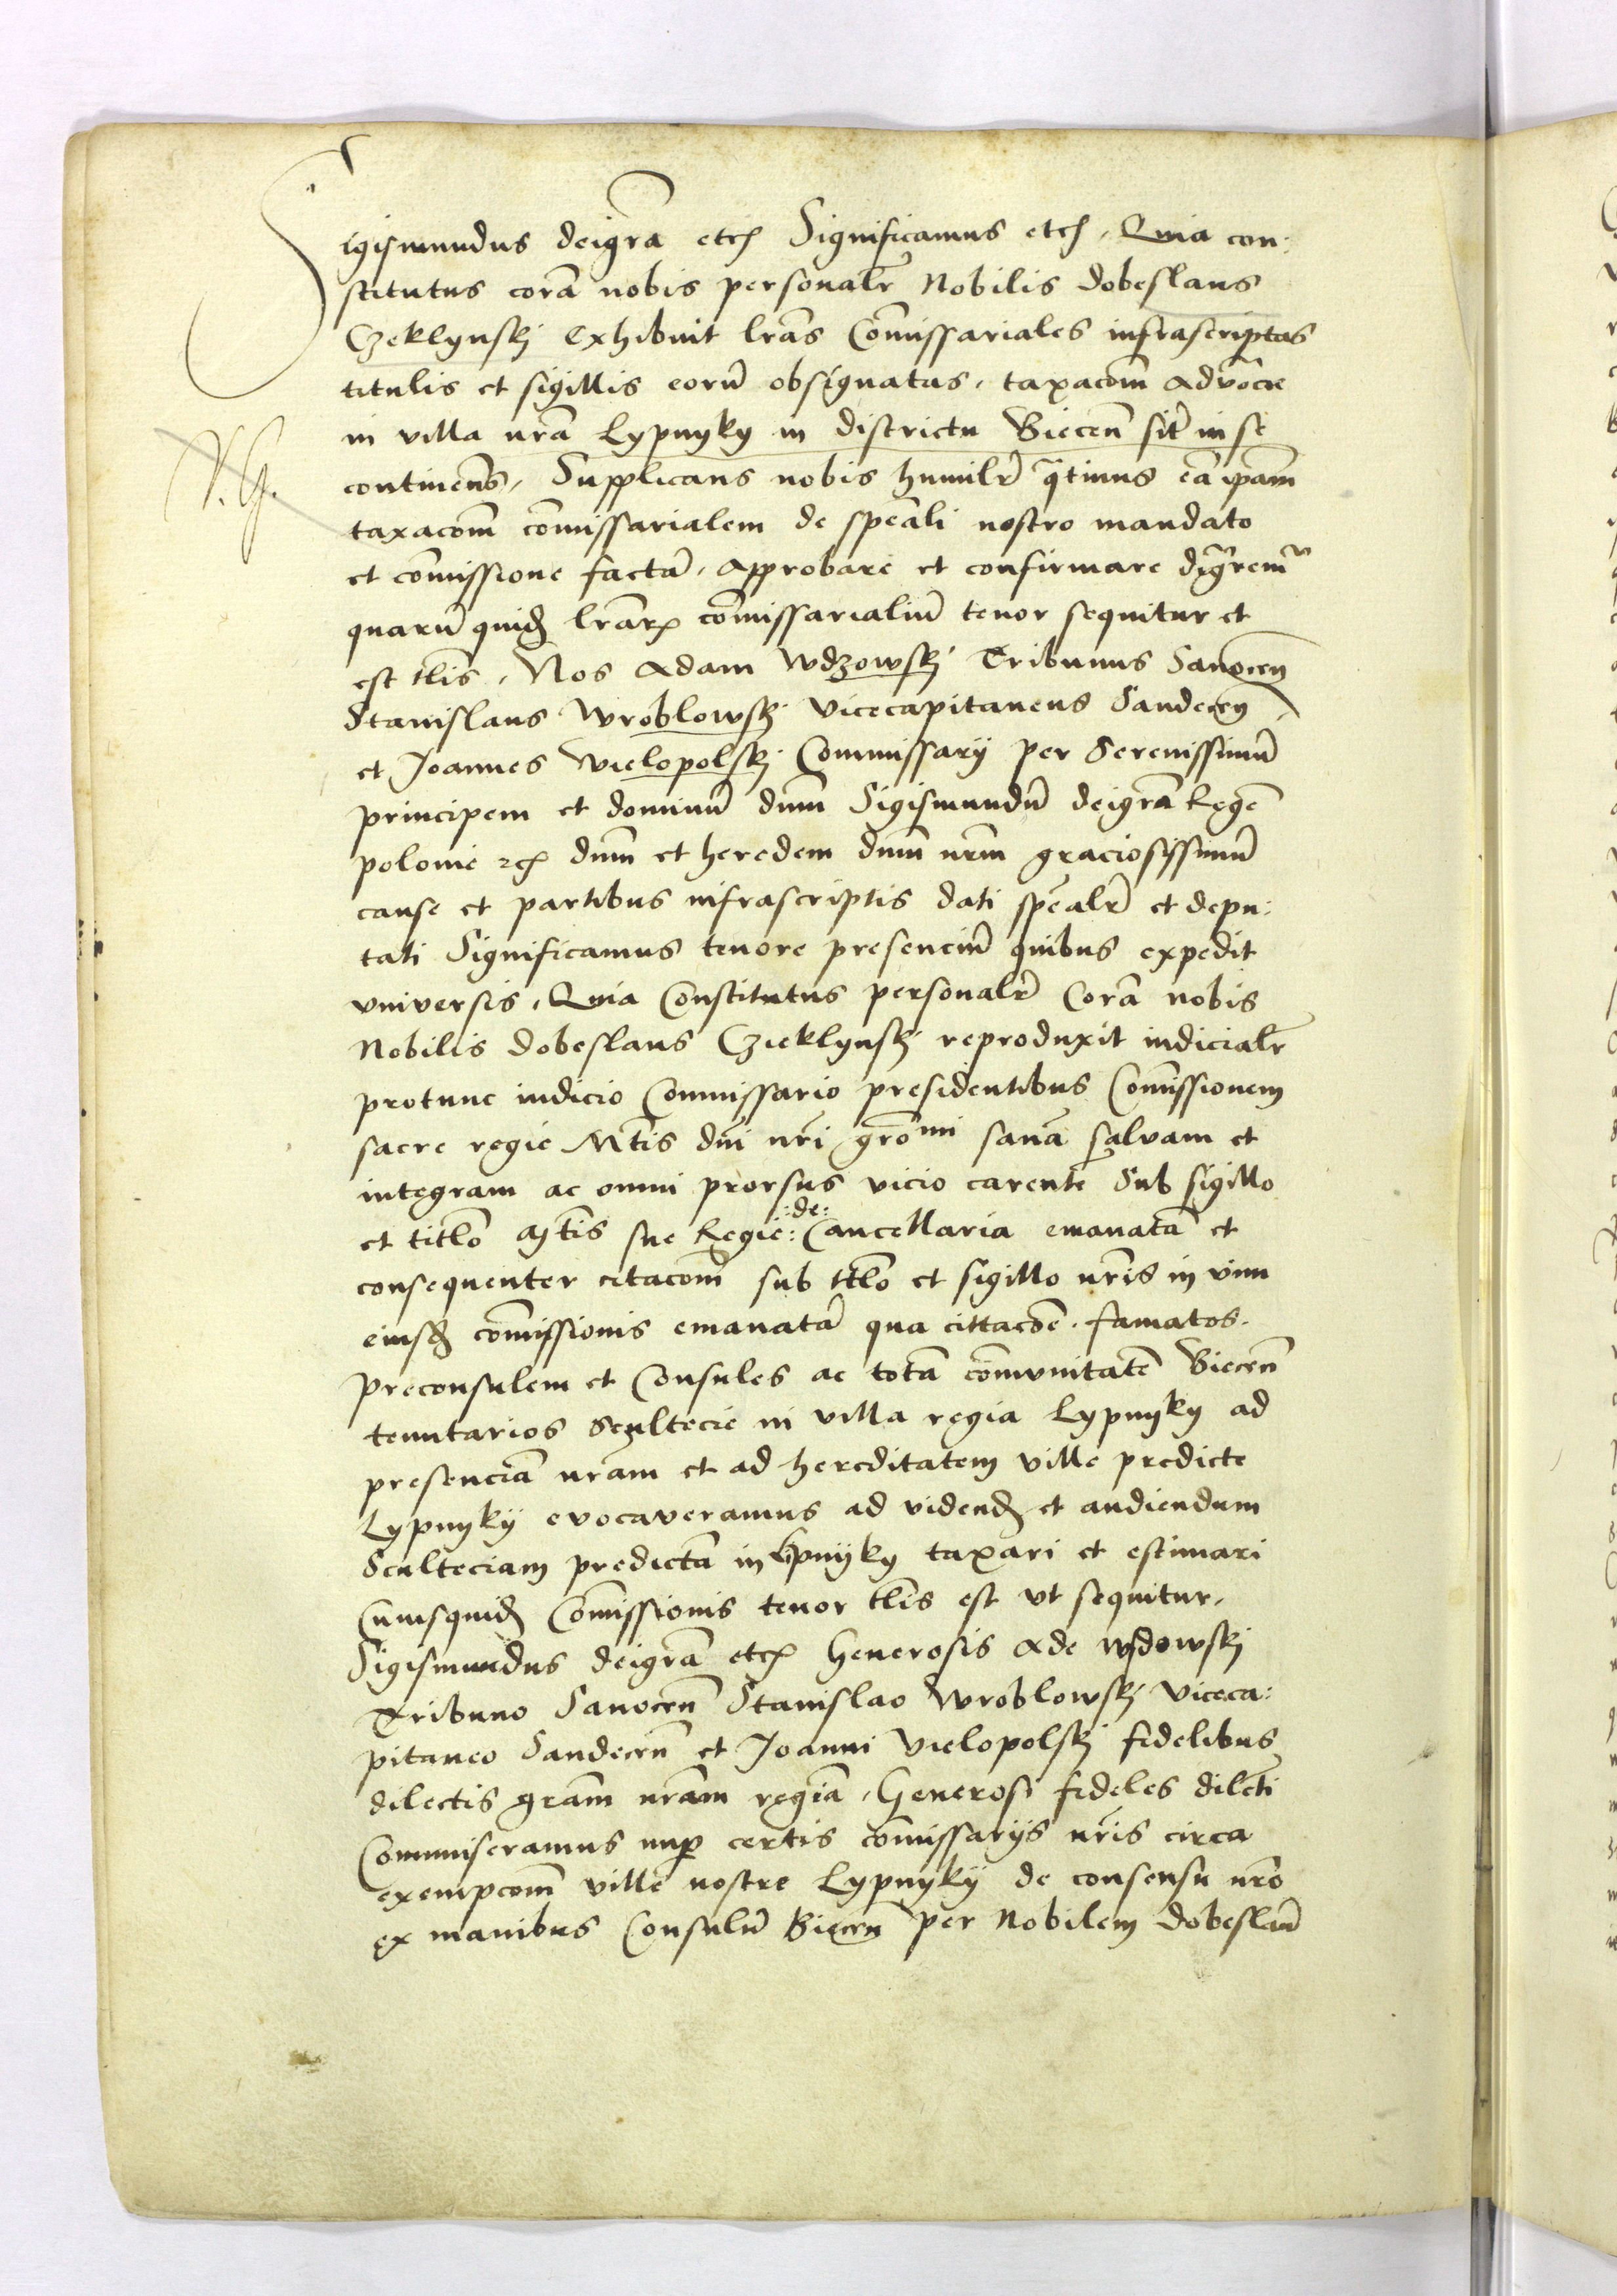 Sigismundus deigrã etcꝭ Significamus etcꝭ, Quia con:
stitutus corã nobis personalr̃ Nobilis dobeslaus
Czeklynskj Exhibuit lrãs Com̃issariales infrascriptas
titulis et sigillis eorũ obsignatas, taxacom̃ advõcie
in villa nrã Lypnyky in districtu Biecen̄ sit̃ in se
continen̄s, Supplicans nobis humilr̃ q̃tinus eã ipãm
taxacom̃ com̃issarialem de speãli nostro mandato
et com̃issione factã, Approbare et confirmare dig̃remr̃
quarũ quidꝫ lrãrꝝ com̃issarialiũ tenor sequitur et
est tl̃is, Nos Adam Wdzowskj Tribunus Sanocen̄
Stanislaus Wroblowskj Vicecapitaneus Sandecen̄
et Joannes Wielopolskj Commissarij per Serenissimũ
principem et dominũ dnm̃ Sigismundũ deigrã Regẽ
polonie ꝛcꝭ dnm̃ et heredem dnm̃ nrm̃ graciosissimũ
cause et partibus infrascriptis dati speãlr̃ et depu:
tati Significamus tenore presenciũ quibus expedit
vniversis, Quia Constitutus personalr̃ Corã nobis
Nobilis dobeslaus Czieklynskj reproduxit iudicialr̃
protunc iudicio Commissario presidentibus Com̃issionem
sacre regie Mt̃is dñi nr̃i gro͂mi sanã salvam et
integram ac omni prorsus vicio carentẽ Sub sigillo
et titlõ Mt̃is sue Regie :de: Cancellaria emanatã et
consequenter citacom̃ sub ttlõ et sigillo nr̃is in vim
eiusdꝫ com̃issionis emanatã qua cittacõe, famatos,
preconsulem et Consules ac totã com̃vnitatẽ Biecen̄
tenutarios Scultecie in villa regia Lypnyky ad
presenciã nrãm et ad hereditatem ville predicte
Lypnykÿ evocaveramus ad videndꝫ et audiendum
Sculteciam predictã in Lypnÿky taxari et estimari
Cuiusquidꝫ Com̃issionis tenor tl̃is est vt sequitur,
Sigismundus deigrã etcꝭ Generosis Ade Wsdowskj
Tribuno Sanocen̄ Stanislao Wroblowskj Viceca:
pitaneo Sandecen̄ et Joanni Vielopolskj fidelibus
dilectis grãm nrãm regiã, Generosi fideles dilect̃i
Commiseramus nuꝑ certis com̃issarijs nr̃is circa
exempcom̃ ville nostre Lypnykÿ de consensu nrõ
ex manibus Consulũ Biecen̄ per Nobilem dobeslaũ